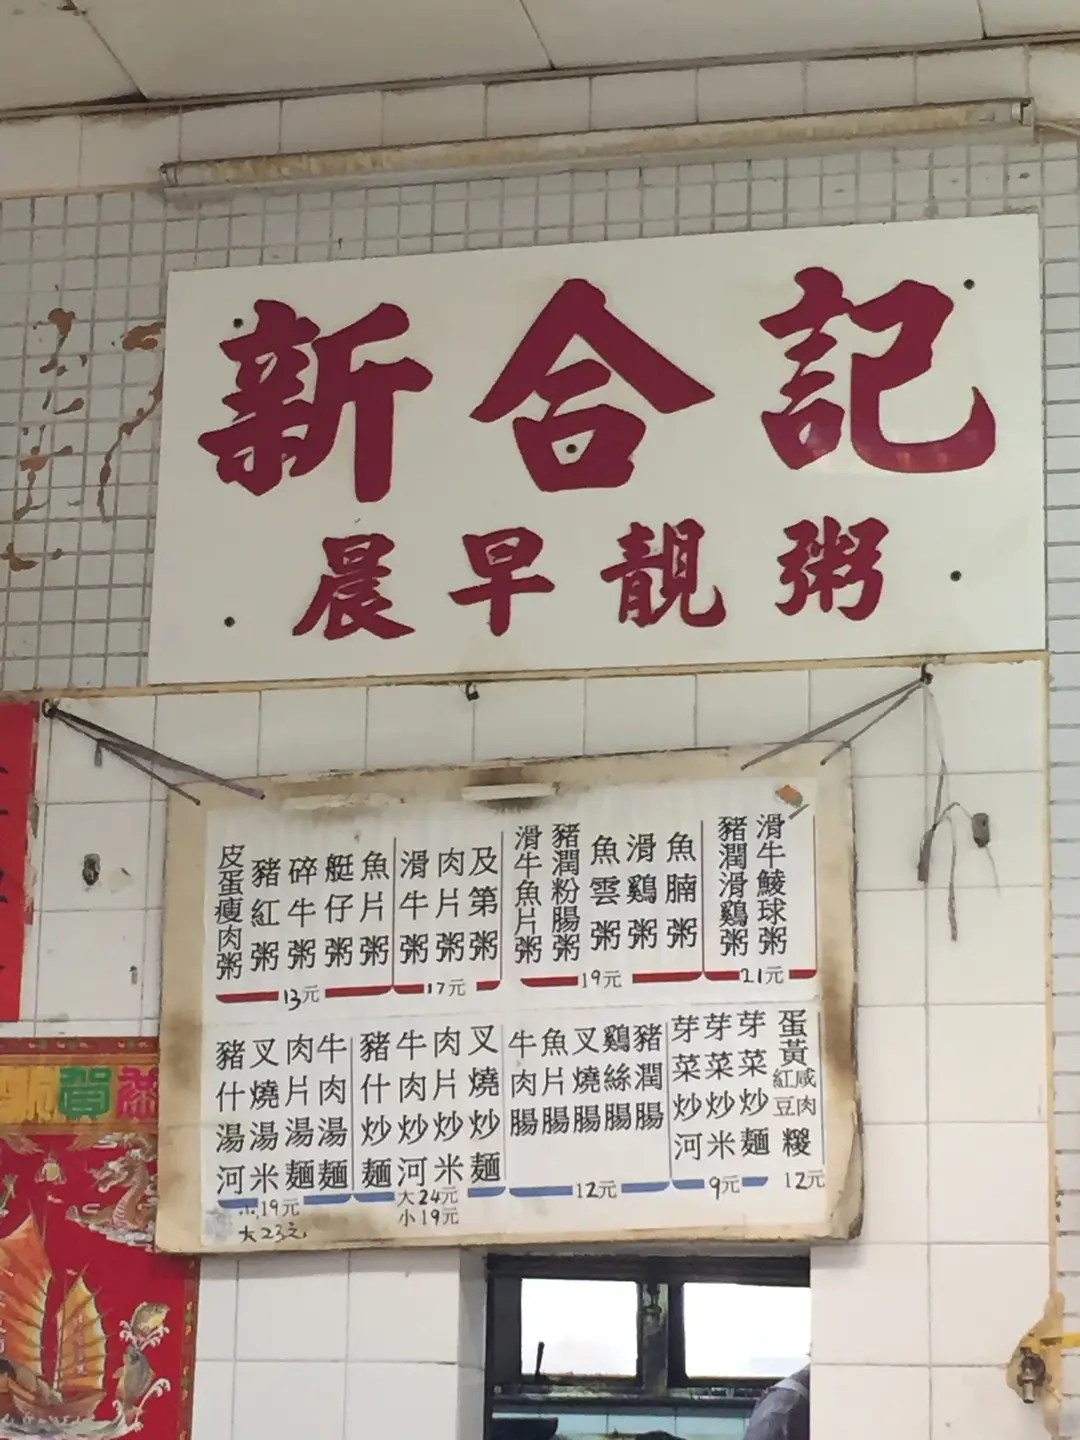 新合記
晨早靚粥
皮蛋瘦肉粥
豬紅粥
碎牛粥
艇仔粥
魚片粥
13元
滑牛粥
肉片粥
及第粥
17元
滑牛魚片粥
豬潤粉腸粥
魚雲粥
滑鷄粥
魚腩粥
19元
豬潤滑鷄粥
滑牛鯪球粥
21元
豬什湯河
叉燒湯米
肉片湯麵
牛肉湯麵
小19元
大23元
豬什炒麵
牛肉炒河
肉片炒米
叉燒炒麵
大24元
小19元
牛肉腸
魚片腸
叉燒腸
鷄絲腸
豬潤腸
12元
芽菜炒河
芽菜炒米
芽菜炒麵
9元
蛋黃咸肉糭
紅豆
12元
賀